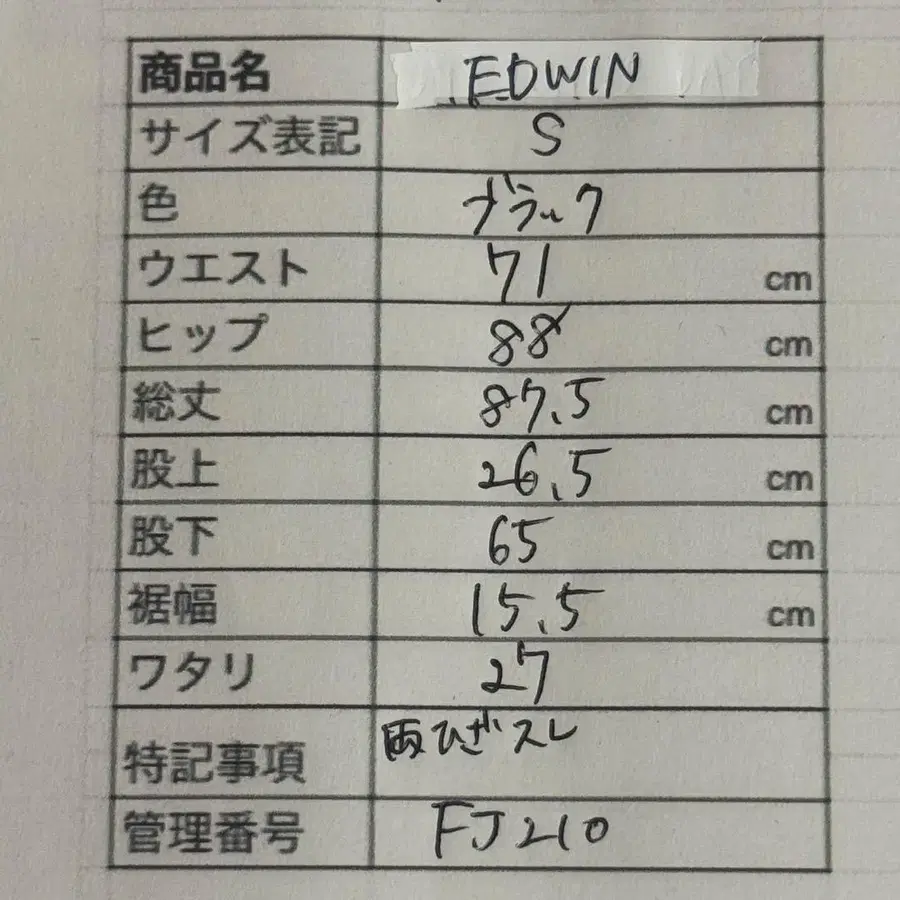 商品名 EDWIN
サイズ表記 S
色 ブラック
ウエスト 71 cm
ヒップ 88 cm
総丈 87.5 cm
股上 26.5 cm
股下 65 cm
裾幅 15.5 cm
ワタリ 27
特記事項 両ひざスレ
管理番号 FJ210